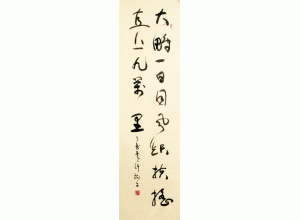 大鵬一日同風起扶搖
直上九萬里